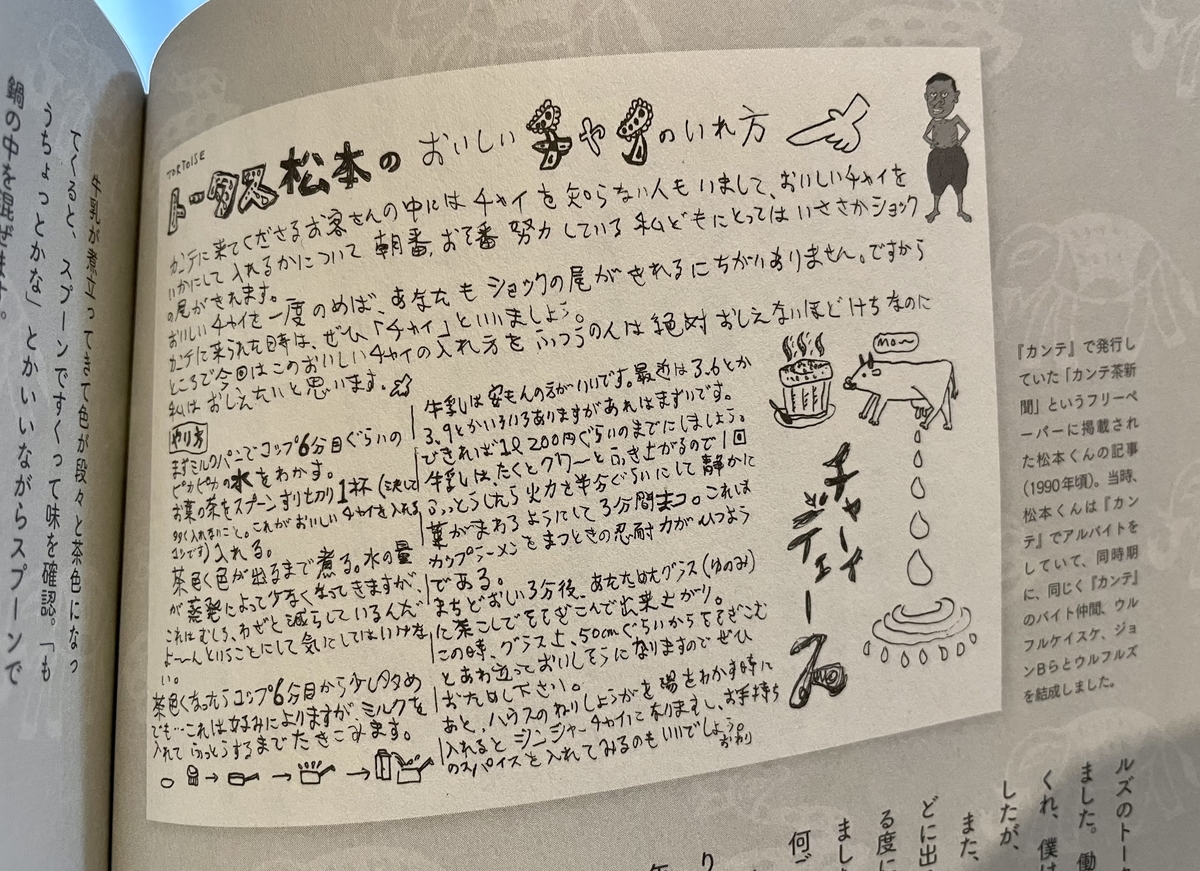 TORTOISE
トータス松本の おいしい チャイのいれ方
カンテに来てくださるお客さんの中にはチャイを知らない人もいまして、おいしいチャイを
いかにして入れるかについて 朝番、おそ番 努力している私どもにとってはいささかショック
の尾がきれます。
おいしいチャイを一度のめば、あなたも ショックの尾がきれるにちがいありません。ですから
カンテに来られた時は、ぜひ「チャイ」といいましょう。
ところで今回はこのおいしいチャイの入れ方を ふつうの人は絶対おしえないほどけちなのに
私はおしえたいと思います。
やり方
まずミルクパンでコップ6分目ぐらいの
ピカピカの水をわかす。
お葉の茶をスプーンすり切り1杯(決して
多く入れないこと。これがおいしいチャイを入れる
コツです)入れる。
茶色く色が出るまで煮る。水の量
が蒸発によって少なくなってきますが、
これはむしろ、わざと減らしているんだ
よ〜んということにして気にしてはいけな
い。
茶色くなったらコップ6分目から少し多め
でも…これは好みによりますが、ミルクを
入れて ふっとうするまでたきこみます。
牛乳は客もんの方がいいです。最近は3.6とか
3.9とかいろいろありますがあれはまずいです。
できれば1ℓ200円ぐらいのまでにしましょう。
牛乳は、たくとクワーとふき上がるので1回
ふっとうしたら火力を半分ぐらいにして静かに
葉がまわるようにして3分間まつ。これは
カップラーメンをまつときの忍耐力がひつよう
である。
まちどおしい3分後、あたためたグラス(ゆのみ)
に茶こしでそそぎこんで出来上がり。
この時、グラス上、50cmぐらいからそそぎこむ
とあわ立っておいしそうになりますのでぜひ
おためし下さい。
あと、ハウスのねりしょうがを湯をわかす時に
入れると ジンジャーチャイになりますし、お手持ち
のスパイスを入れてみるのもいいでしょう。
おわり
mo〜
チャーイ
デェーズ
『カンテ』で発行し
ていた「カンテ茶新
聞」というフリーペ
ーパーに掲載され
た松本くんの記事
(1990年頃)。当時、
松本くんは『カン
テ』でアルバイトを
していて、同時期
に、同じく『カンテ』
のバイト仲間、ウル
フルケイスケ、ジョ
ンBらとウルフルズ
を結成しました。
牛乳が煮立ってきて色が段々と茶色になっ
てくると、スプーンですくって味を確認。「も
うちょっとかな」とかいいながらスプーンで
鍋の中を混ぜます。
ルズのトータ
ました。働
くれ、僕は
したが、
また、
どに出
る度に
ました
何ご
り